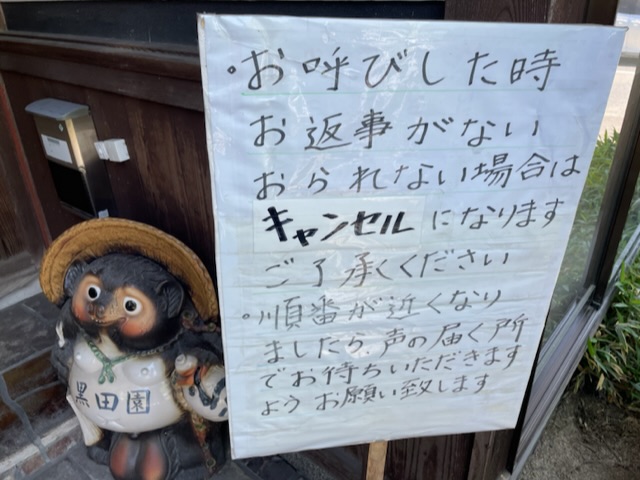 ・お呼びした時
お返事がない
おられない場合は
キャンセルになります
ご了承ください
・順番が近くなり
ましたら声の届く所
でお待ちいただきます
ようお願い致します
黒田園